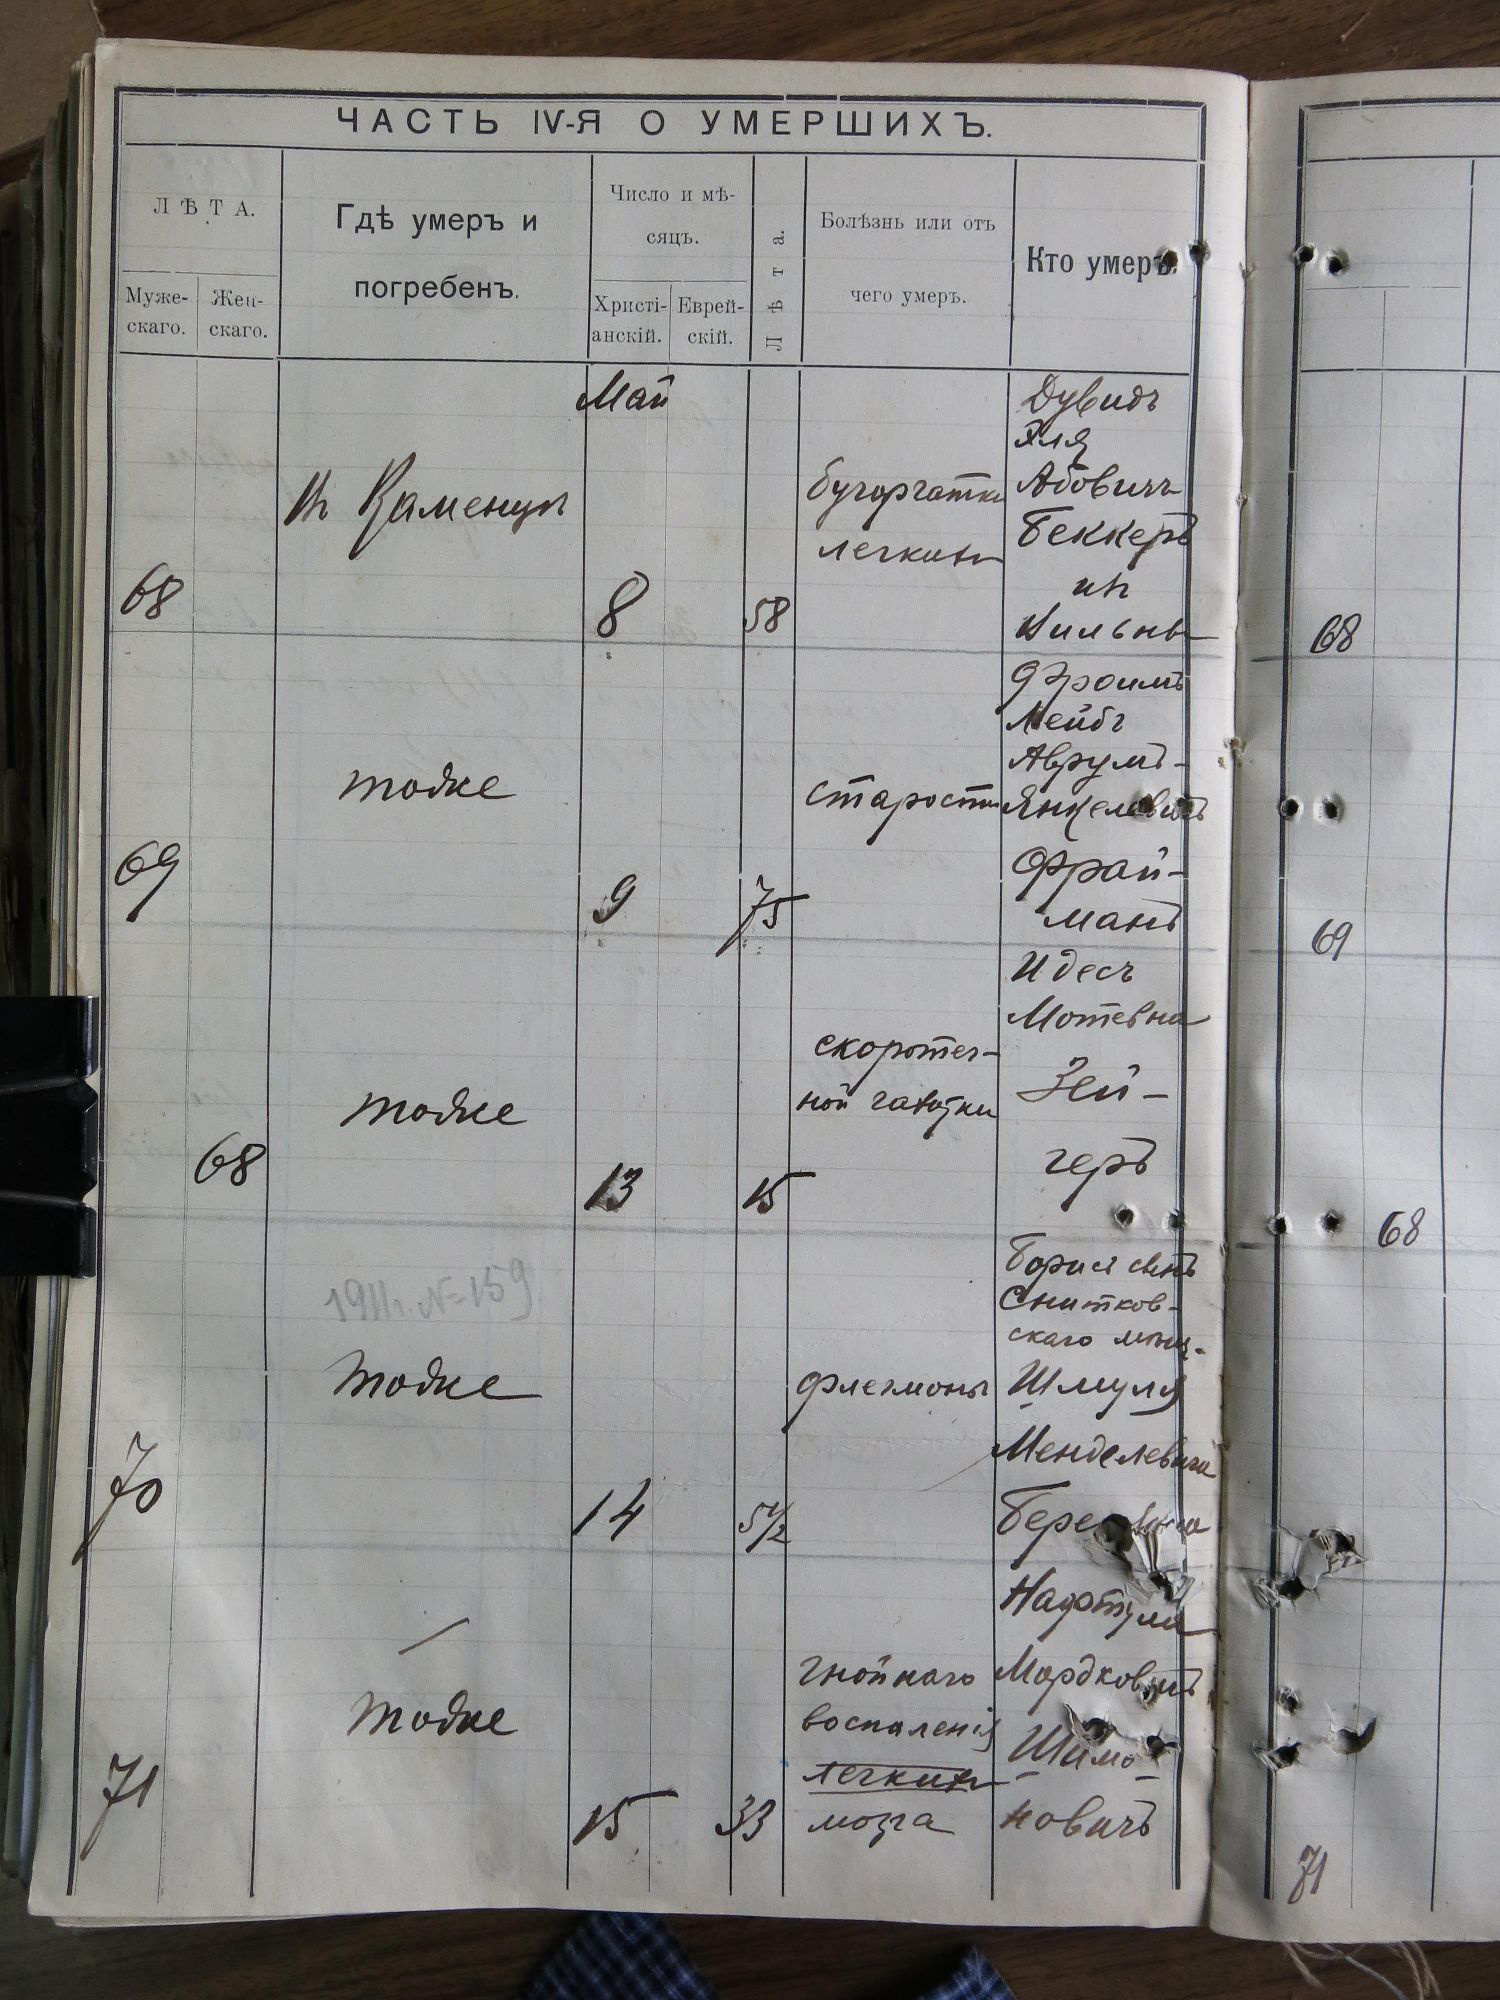 ЧАСТЬ IV-Я О УМЕРШИХЪ.
ЛѢТА.
Муже-
скаго.
Жен-
скаго.
Гдѣ умеръ и
погребенъ.
Число и мѣ-
сяцъ.
Христі-
анскій.
Еврей-
скій.
Лѣта.
Болѣзнь или отъ
чего умеръ.
Кто умеръ.
Май
68
въ Каменцѣ
8
58
бугорчатки
легкихъ
Дувидъ
Эля
Абовичъ
Беккеръ
изъ
Вильны
68
69
тоже
9
75
старости
Фроимъ
Лейбъ
Аврумъ-
Янкелевичъ
Фрай-
манъ
69
68
тоже
13
15
скоротеч-
ной чахотки
Идесъ
Мотевна
Зей-
геръ
68
1911г. № 159
70
тоже
14
5 1/2
флегмоны
Борисъ сынъ
Снитков-
скаго мѣщ.
Шмуля
Менделевича
71
тоже
15
33
гнойнаго
воспаленія
легкихъ
мозга
Нафтула
Мордковичъ
Шимо-
новичъ
71